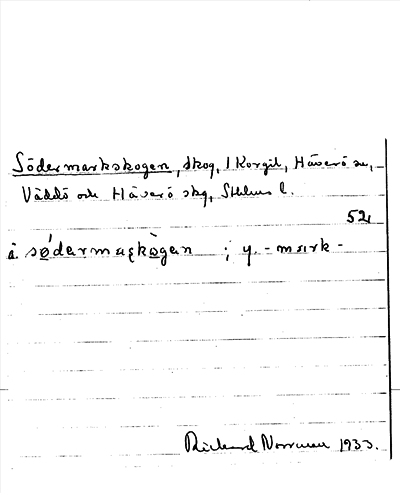 Södermarkskogen, skog, 1 Korgil, Häverö sn,
Väddö och Häverö skg, Sthlms l.
52
å sǿdarmaʂkògan ; y. -mark-
Rickard Norrman 1933.